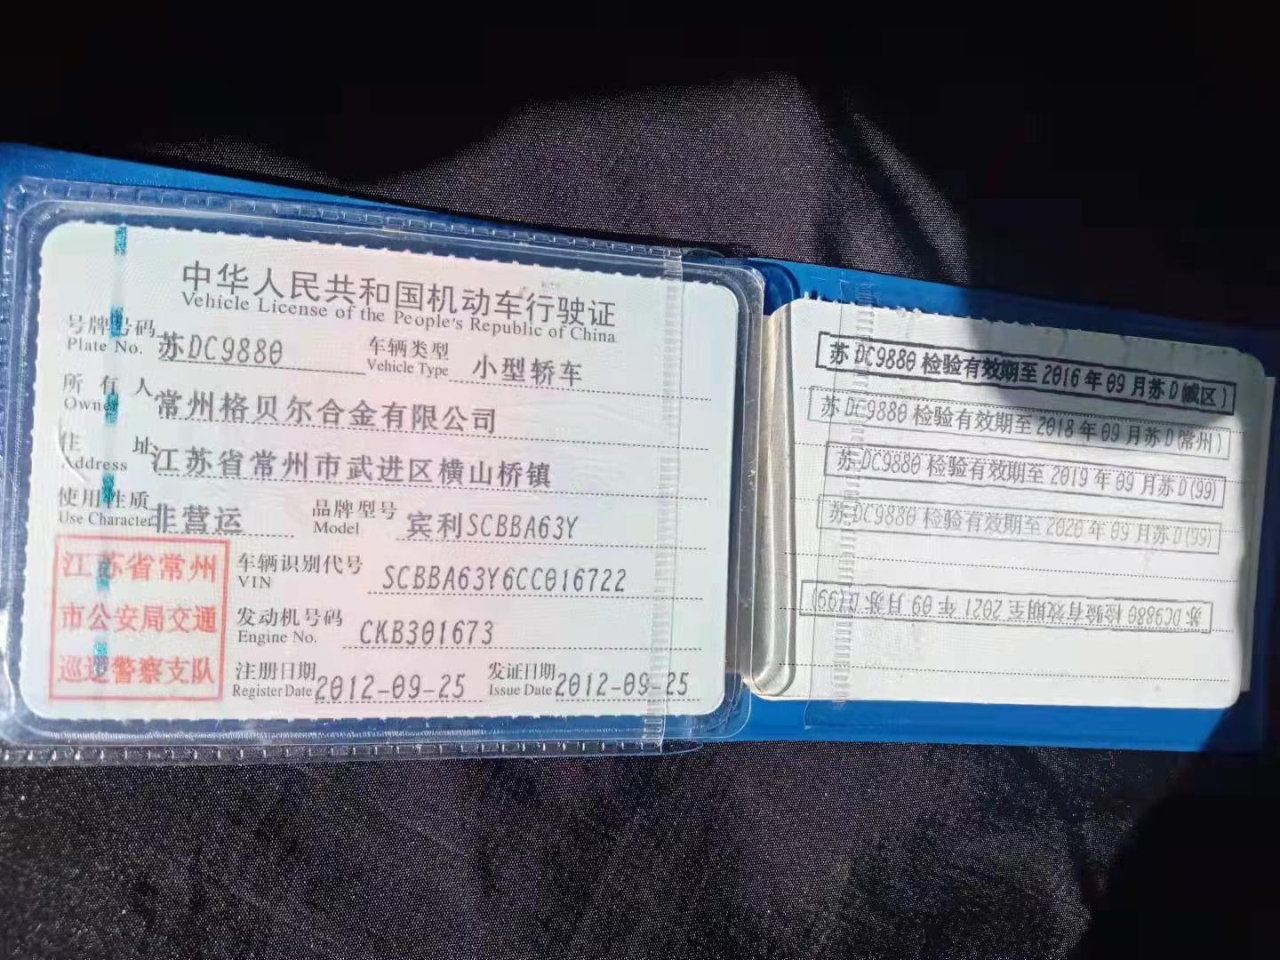 中华人民共和国机动车行驶证
Vehicle License of the People's Republic of China
号牌号码 Plate No. 苏DC9880 车辆类型 Vehicle Type 小型轿车
所有人 Owner 常州格贝尔合金有限公司
住址 Address 江苏省常州市武进区横山桥镇
使用性质 Use Character 非营运 品牌型号 Model 宾利SCBBA63Y
江苏省常州
市公安局交通
巡逻警察支队
车辆识别代号 VIN SCBBA63Y6CC016722
发动机号码 Engine No. CKB301673
注册日期 Register Date 2012-09-25 发证日期 Issue Date 2012-09-25
苏DC9880检验有效期至2016年09月苏D(城区)
苏DC9880检验有效期至2018年09月苏D(常州)
苏DC9880检验有效期至2019年09月苏D(99)
苏DC9880检验有效期至2020年09月苏D(99)
苏DC9880检验有效期至2021年09月苏D(99)